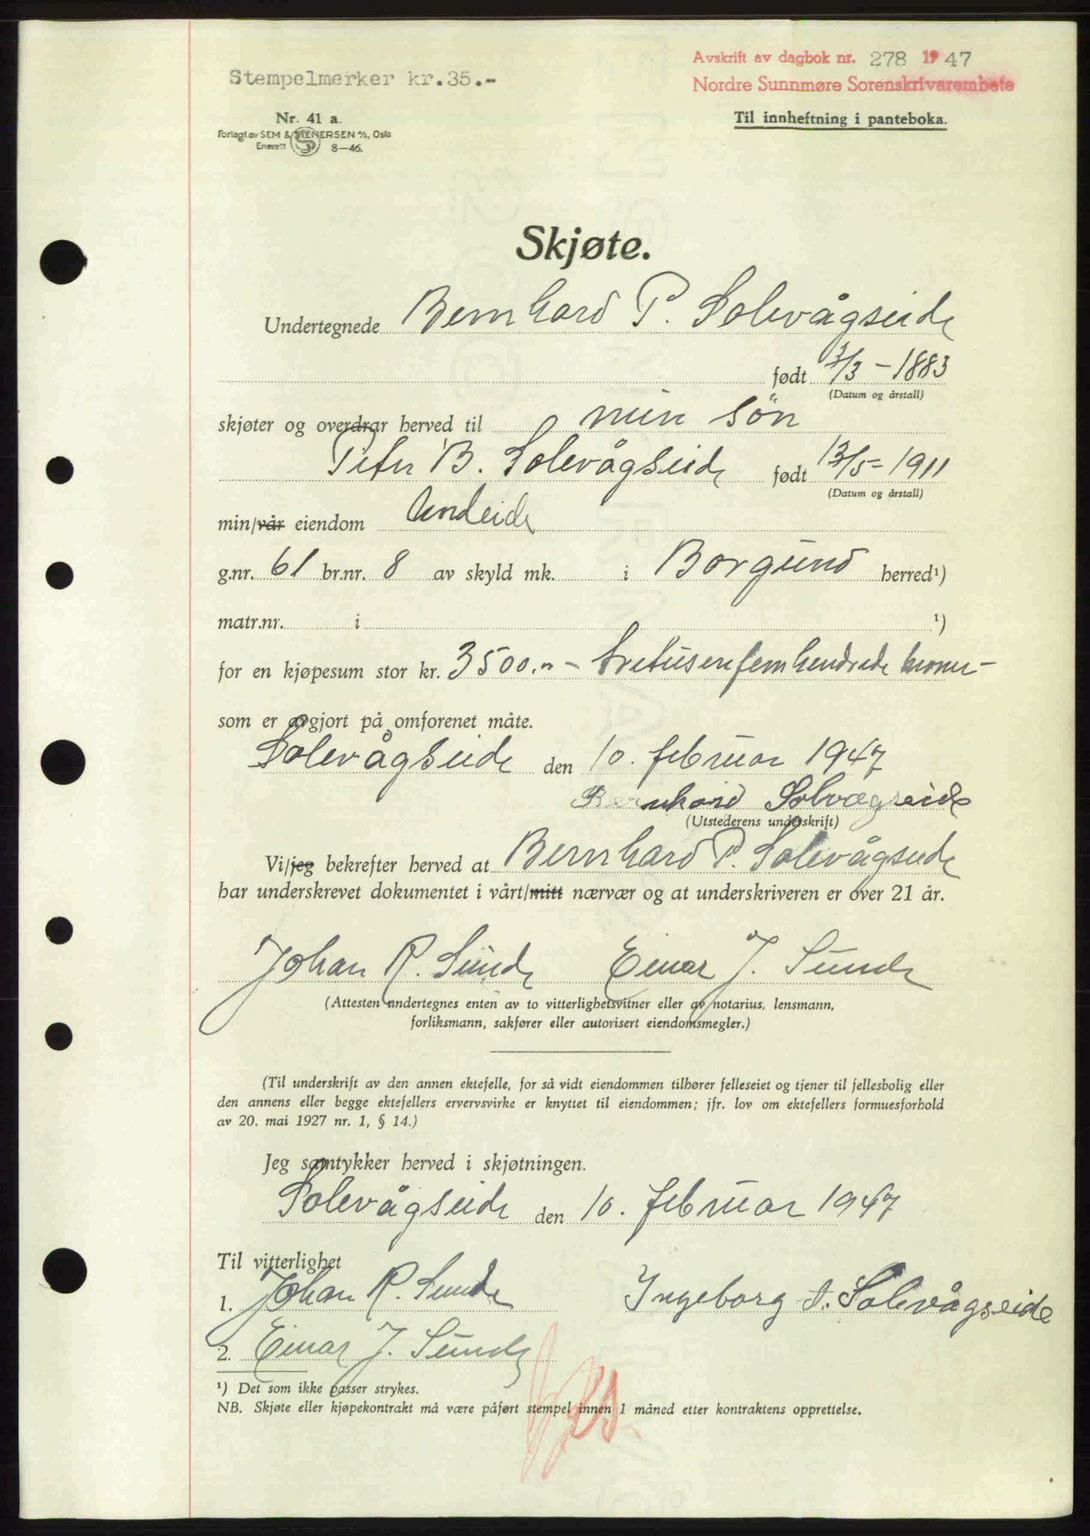 Stempelmerker kr.35.-
Avskrift av dagbok nr. 278 1947
Nordre Sunnmøre Sorenskrivarembete
Til innheftning i panteboka.
Nr. 41 a.
Forlagt av SEM & STENERSEN A/S, Oslo
Enerett 8—46.
Skjøte.
Undertegnede Bernhard P. Solevågseide
født /3 - 1883
(Datum og årstall)
skjøter og overdrar herved til min søn
Peter B. Solevågseide født 13/5 - 1911
(Datum og årstall)
min/vår eiendom Undeide
g.nr. 61 br.nr. 8 av skyld mk. i Borgund herred¹)
matr.nr. i ¹)
for en kjøpesum stor kr. 3500.- - tretusenfemhundrede kroner -
som er avgjort på omforenet måte.
Solevågseide den 10. februar 1947
Bernhard Solevægseide
(Utstederens underskrift)
Vi/jeg bekrefter herved at Bernhard P. Solevågseide
har underskrevet dokumentet i vårt/mitt nærvær og at underskriveren er over 21 år.
Johan R. Sunde Einar J. Sunde
(Attesten undertegnes enten av to vitterlighetsvitner eller av notarius, lensmann,
forliksmann, sakfører eller autorisert eiendomsmegler.)
(Til underskrift av den annen ektefelle, for så vidt eiendommen tilhører felleseiet og tjener til fellesbolig eller
den annens eller begge ektefellers ervervsvirke er knyttet til eiendommen; jfr. lov om ektefellers formuesforhold
av 20. mai 1927 nr. 1, § 14.)
Jeg samtykker herved i skjøtningen.
Solevågseide den 10. februar 1947
Til vitterlighet
1. Johan R. Sunde Ingeborg A. Solevågseide
2. Einar J. Sunde
¹) Det som ikke passer strykes.
NB. Skjøte eller kjøpekontrakt må være påført stempel innen 1 måned etter kontraktens opprettelse.